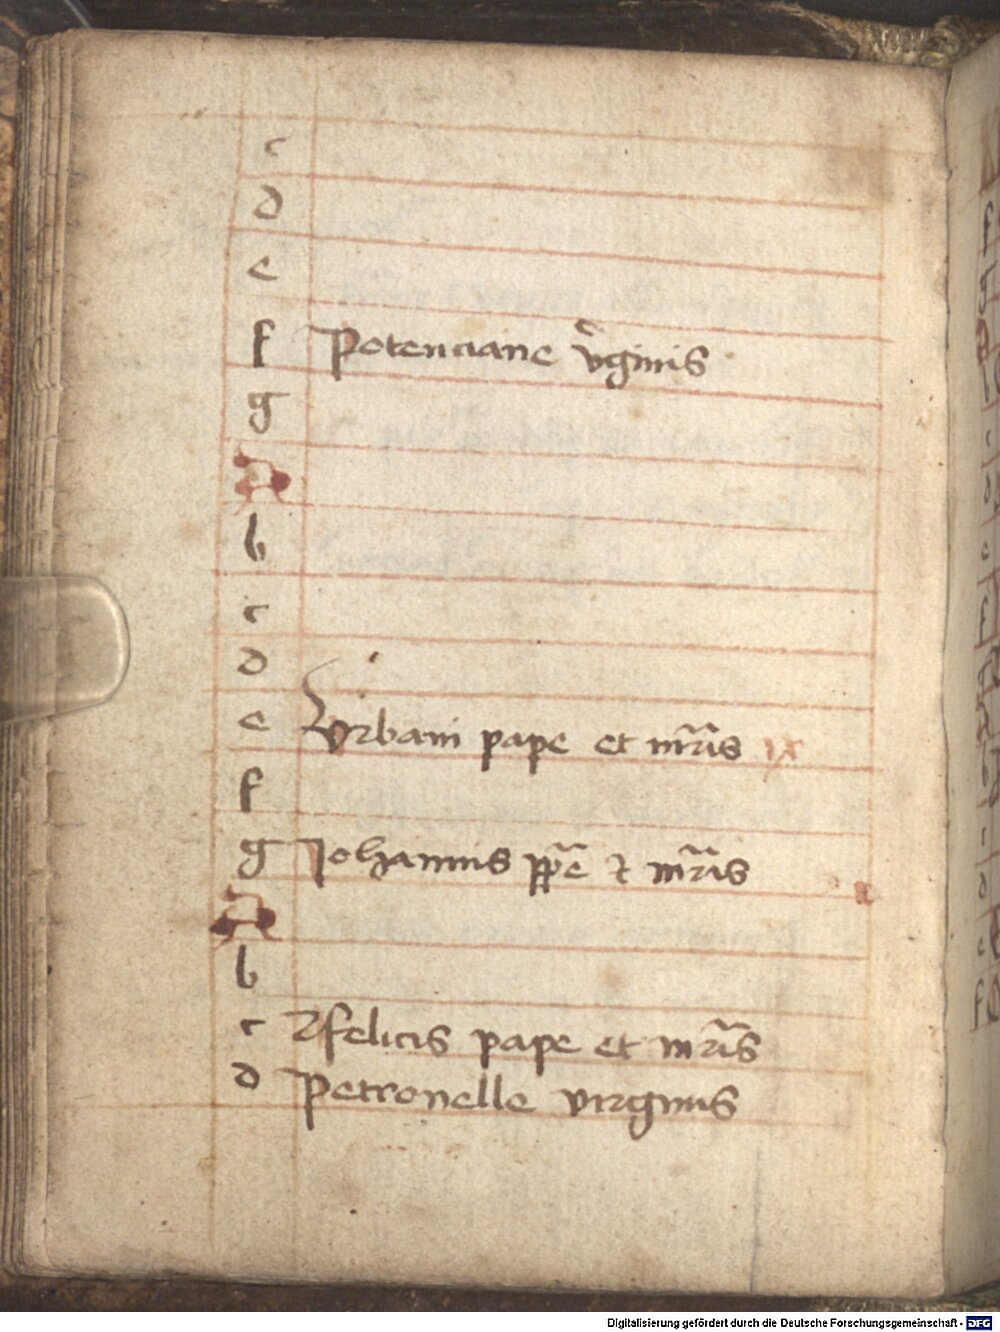 c
d
e
f Potenciane v̄ginis
g
A
b
c
d
e Vrbani pape et mr̄is ix
f
g Johannis pp̄e ⁊ mr̄is
A
b
c felicis pape et mr̄is
d Petronelle virginis
Digitalisierung gefördert durch die Deutsche Forschungsgemeinschaft - DFG